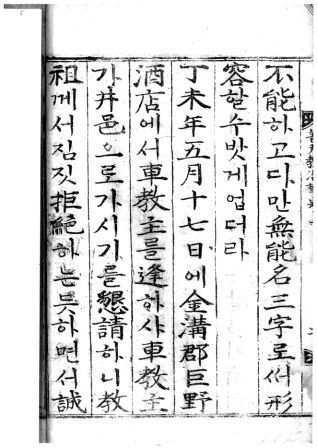 不能하고다만無能名三字로써形
容할수밧게업더라
丁未年五月十七日에金溝郡巨野
酒店에서車教主를逢하샤車教主
가井邑으로가시기를懇請하니教
祖께서짐짓拒絶하는듯하면서誠